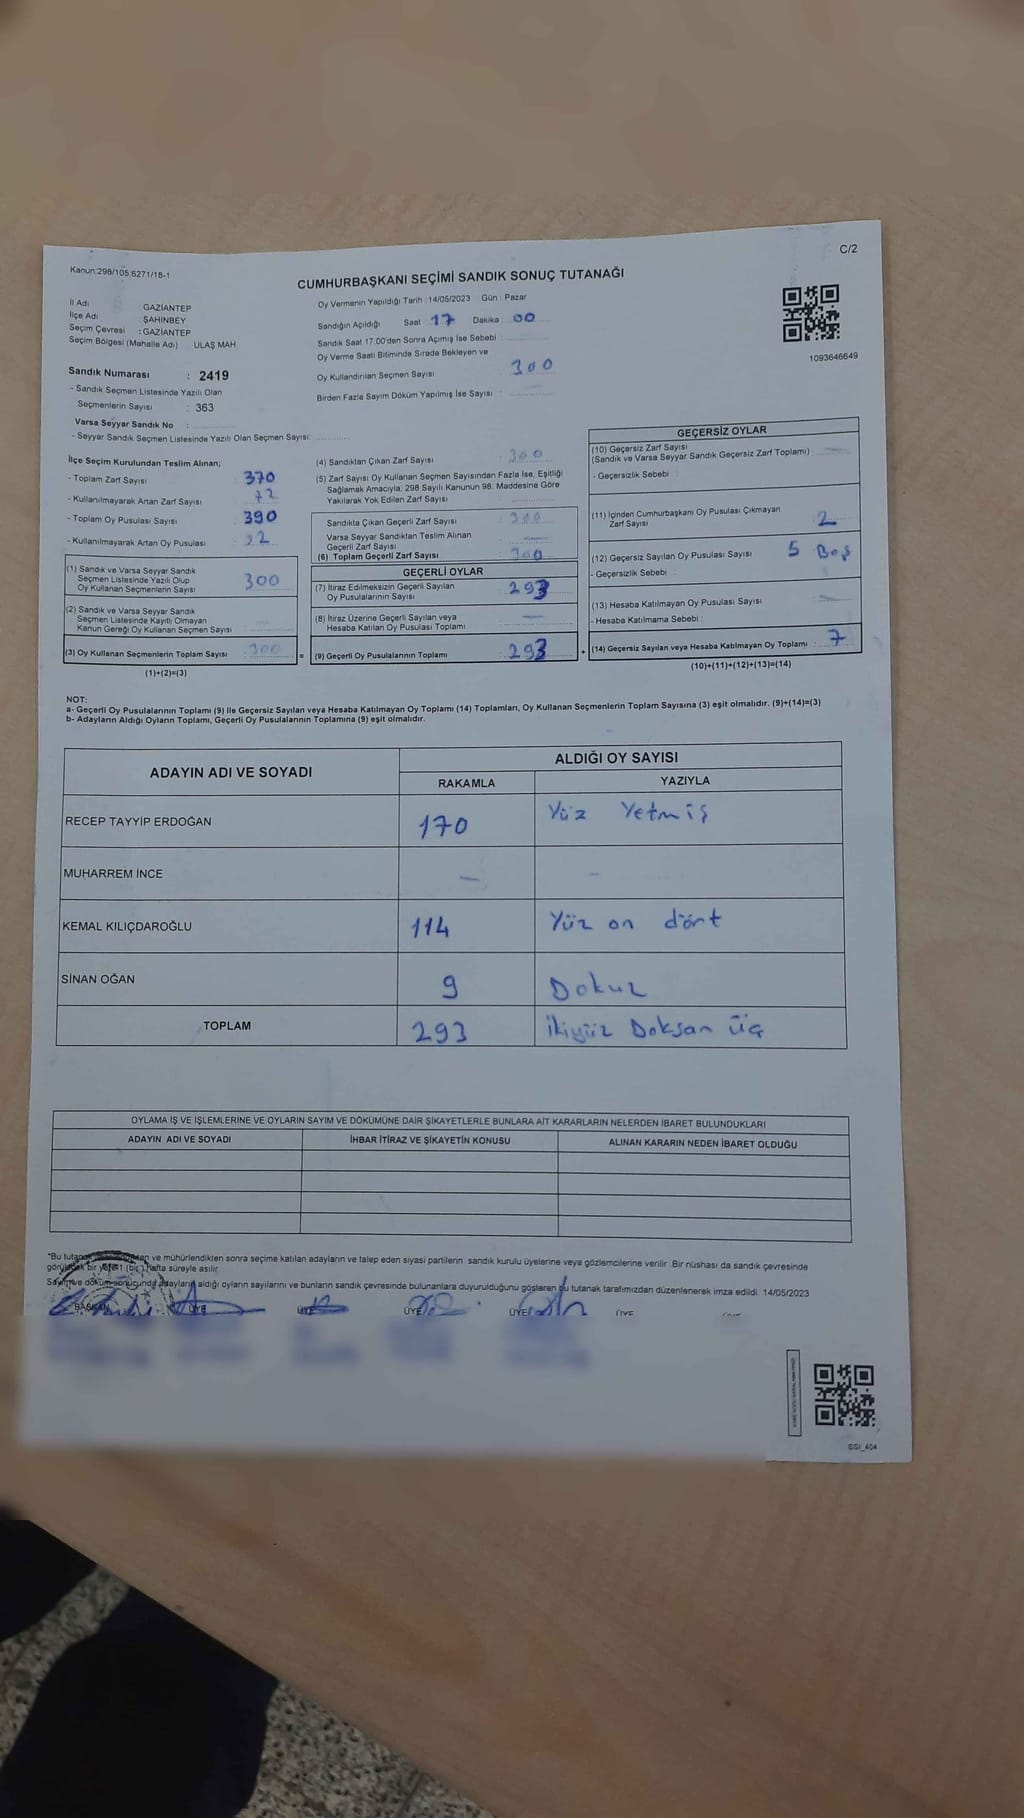 C/2
Kanun:298/105,6271/18-1
CUMHURBAŞKANI SEÇİMİ SANDIK SONUÇ TUTANAĞI
İl Adı : GAZİANTEP
İlçe Adı : ŞAHİNBEY
Seçim Çevresi : GAZİANTEP
Seçim Bölgesi (Mahalle Adı) : ULAŞ MAH
Sandık Numarası : 2419
- Sandık Seçmen Listesinde Yazılı Olan
Seçmenlerin Sayısı : 363
Varsa Seyyar Sandık No :
- Seyyar Sandık Seçmen Listesinde Yazılı Olan Seçmen Sayısı:
Oy Vermenin Yapıldığı Tarih : 14/05/2023 Gün : Pazar
Sandığın Açıldığı Saat 17 Dakika 00
Sandık Saat 17:00'den Sonra Açımış İse Sebebi :
Oy Verme Saati Bitiminde Sırada Bekleyen ve
Oy Kullandırılan Seçmen Sayısı : 300
Birden Fazla Sayım Döküm Yapılmış İse Sayısı :
1093646649
İlçe Seçim Kurulundan Teslim Alınan;
- Toplam Zarf Sayısı : 370
- Kullanılmayarak Artan Zarf Sayısı : 72
- Toplam Oy Pusulası Sayısı : 390
- Kullanılmayarak Artan Oy Pusulası : 92
(1) Sandık ve Varsa Seyyar Sandık
Seçmen Listesinde Yazılı Olup
Oy Kullanan Seçmenlerin Sayısı : 300
(2) Sandık ve Varsa Seyyar Sandık
Seçmen Listesinde Kayıtlı Olmayan
Kanun Gereği Oy Kullanan Seçmen Sayısı :
(3) Oy Kullanan Seçmenlerin Toplam Sayısı : 300 =
(1)+(2)=(3)
(4) Sandıktan Çıkan Zarf Sayısı : 300
(5) Zarf Sayısı Oy Kullanan Seçmen Sayısından Fazla İse, Eşitliği
Sağlamak Amacıyla; 298 Sayılı Kanunun 98. Maddesine Göre
Yakılarak Yok Edilen Zarf Sayısı :
Sandıkta Çıkan Geçerli Zarf Sayısı : 300
Varsa Seyyar Sandıktan Teslim Alınan
Geçerli Zarf Sayısı : —
(6) Toplam Geçerli Zarf Sayısı : 300
GEÇERLİ OYLAR
(7) İtiraz Edilmeksizin Geçerli Sayılan
Oy Pusulalarının Sayısı : 293
(8) İtiraz Üzerine Geçerli Sayılan veya
Hesaba Katılan Oy Pusulası Toplamı : —
(9) Geçerli Oy Pusulalarının Toplamı : 293 +
GEÇERSİZ OYLAR
(10) Geçersiz Zarf Sayısı
(Sandık ve Varsa Seyyar Sandık Geçersiz Zarf Toplamı) : —
- Geçersizlik Sebebi :
(11) İçinden Cumhurbaşkanı Oy Pusulası Çıkmayan
Zarf Sayısı : 2
(12) Geçersiz Sayılan Oy Pusulası Sayısı : 5 Boş
- Geçersizlik Sebebi :
(13) Hesaba Katılmayan Oy Pusulası Sayısı : —
- Hesaba Katılmama Sebebi :
(14) Geçersiz Sayılan veya Hesaba Katılmayan Oy Toplamı : 7
(10)+(11)+(12)+(13)=(14)
NOT:
a- Geçerli Oy Pusulalarının Toplamı (9) ile Geçersiz Sayılan veya Hesaba Katılmayan Oy Toplamı (14) Toplamları, Oy Kullanan Seçmenlerin Toplam Sayısına (3) eşit olmalıdır. (9)+(14)=(3)
b- Adayların Aldığı Oyların Toplamı, Geçerli Oy Pusulalarının Toplamına (9) eşit olmalıdır.
ADAYIN ADI VE SOYADI
ALDIĞI OY SAYISI
RAKAMLA YAZIYLA
RECEP TAYYİP ERDOĞAN 170 Yüz Yetmiş
MUHARREM İNCE — —
KEMAL KILIÇDAROĞLU 114 Yüz on dört
SİNAN OĞAN 9 Dokuz
TOPLAM 293 İkiyüz Doksan üç
OYLAMA İŞ VE İŞLEMLERİNE VE OYLARIN SAYIM VE DÖKÜMÜNE DAİR ŞİKAYETLERLE BUNLARA AİT KARARLARIN NELERDEN İBARET BULUNDUKLARI
ADAYIN ADI VE SOYADI İHBAR İTİRAZ VE ŞİKAYETİN KONUSU ALINAN KARARIN NEDEN İBARET OLDUĞU
*Bu ve mühürlendikten sonra seçime katılan adayların ve talep eden siyasi partilerin sandık kurulu üyelerine veya gözlemcilerine verilir. Bir nüshası da sandık çevresinde
bir (bir) hafta süreyle asılır.
Sayım ve döküm sonucunda adayların aldığı oyların sayılarını ve bunların sandık çevresinde bulunanlara duyurulduğunu gösteren bu tutanak tarafımızdan düzenlenerek imza edildi. 14/05/2023
BAŞKAN ÜYE ÜYE ÜYE ÜYE ÜYE
SSI_404